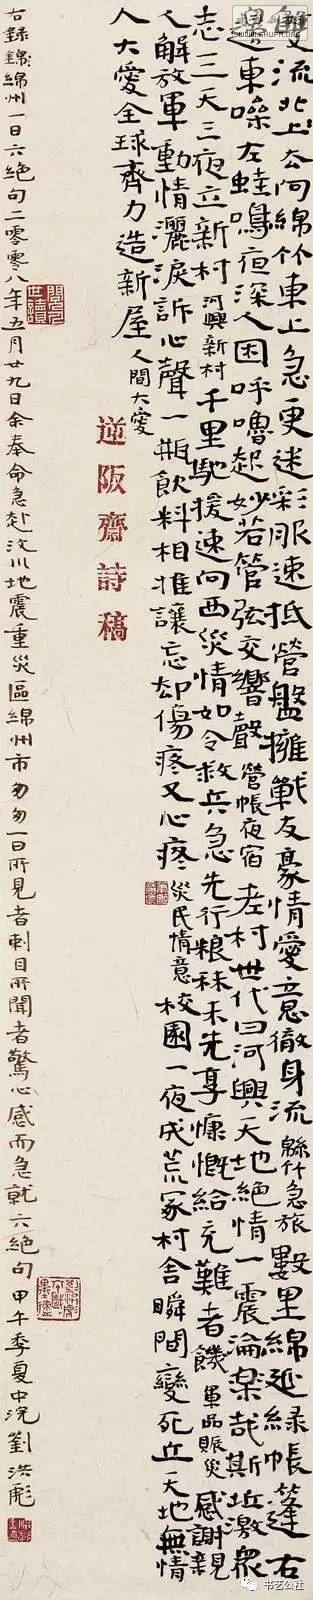 雙流北上去何綿竹東上急更迷彩服速抵營盤擁戰友豪情愛意徹身流 緜竹急旅 數里綿延綠帳篷右
邊東嗓左蛙鳴夜深人困呼嚕起妙若管弦交響聲 營帳夜宿 老村世代曰河興天地絕情一震淪樂哉斯址激衆
志三天三夜立新村 河興新村 千里馳援速向西災情如令救兵急先行粮秣未先享慷慨給充難者饑 軍品賑災 感謝親
人解放軍動情灑淚訴心聲一瓶飲料相推讓忘却傷疼又心疼 災民情意 校園一夜成荒冢村舍瞬間變死丘天地無情
人大愛全球齊力造新屋 人間大愛
逆阪齋詩稿
右錄綿州一日六絕句二零零八年五月廿九日余奉命急赴汶川地震重災區綿州市匆匆一日所見者刺目所聞者驚心感而急就六絕句 甲午季夏中浣劉洪彪
书艺公社